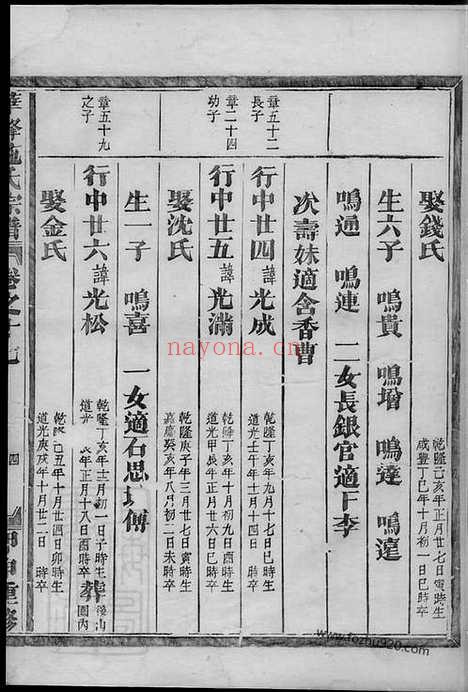 娶錢氏 乾隆己亥年正月廿七日寅時生 咸豐丁巳年十月初一日巳時卒
生六子 鳴貴 鳴增 鳴達 鳴遠
鳴通 鳴連 二女長銀官適下李
次壽妹適含香曹
章五十二長子
行中廿四 諱 光成 乾隆丁亥年九月十七日巳時生 道光壬午年十月十四日 時卒
章二十四功子
行中廿五 諱 光滿 乾隆丁亥年十月初九日酉時生 道光甲辰年正月廿六日巳時卒
娶沈氏 年 月廿七日寅時生 嘉慶癸亥年八月初二日未時卒
生一子 鳴喜 一女適石思 傅
章五十九之子
行中廿六 諱 光松 乾隆丁亥年十二月初一日子時生 道光 辰年正月十八日酉時卒 葬 後山園內
娶金氏 乾隆己丑年十月廿四日卯時生 道光庚戌年十月廿二日 時卒
峰施氏宗譜 卷之十七 四 甲申重修
nayona.cn
www.fozhu920.com